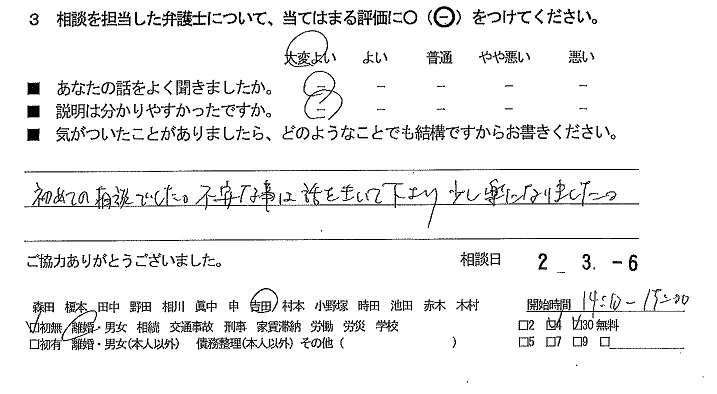 3 相談を担当した弁護士について、当てはまる評価に○（㊀）をつけてください。
大変よい よい 普通 やや悪い 悪い
■ あなたの話をよく聞きましたか。 － － － － －
■ 説明は分かりやすかったですか。 － － － － －
■ 気がついたことがありましたら、どのようなことでも結構ですからお書きください。
初めての相談でした。不安な事は話をきいて下さり少し楽になりました。
ご協力ありがとうございました。 相談日 2 3. -6
森田 榎本 田中 野田 相川 眞中 申 吉田 村本 小野塚 時田 池田 赤木 木村 開始時間 14:00-15:00
☑初無 離婚・男女 相続 交通事故 刑事 家賃滞納 労働 労災 学校 □2 ☑4 ☑30無料
□初有 離婚・男女(本人以外) 債務整理(本人以外) その他 ( ) □5 □7 □9 □